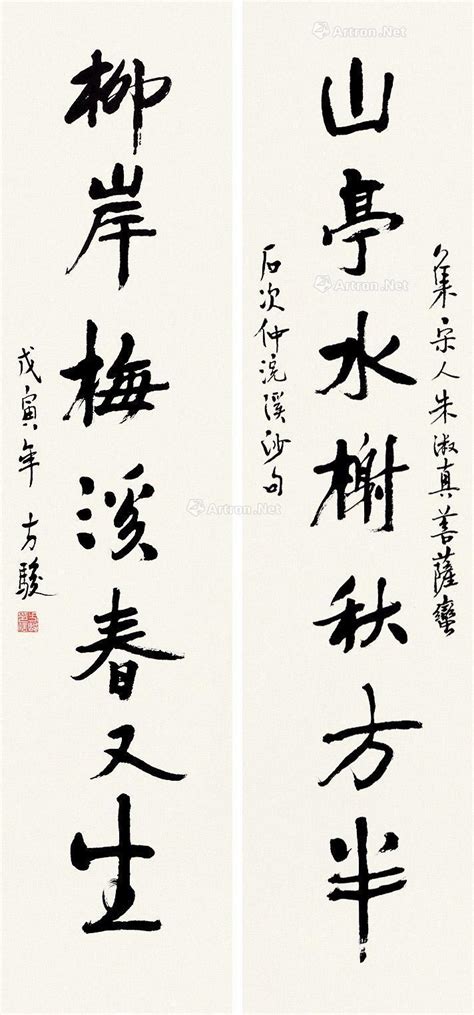 集宋人朱淑真菩薩蠻
山亭水榭秋方半
石次仲浣溪沙句
柳岸梅溪春又生
戊寅年 方駿
Artron.Net
Artron.Net
Artron.Net